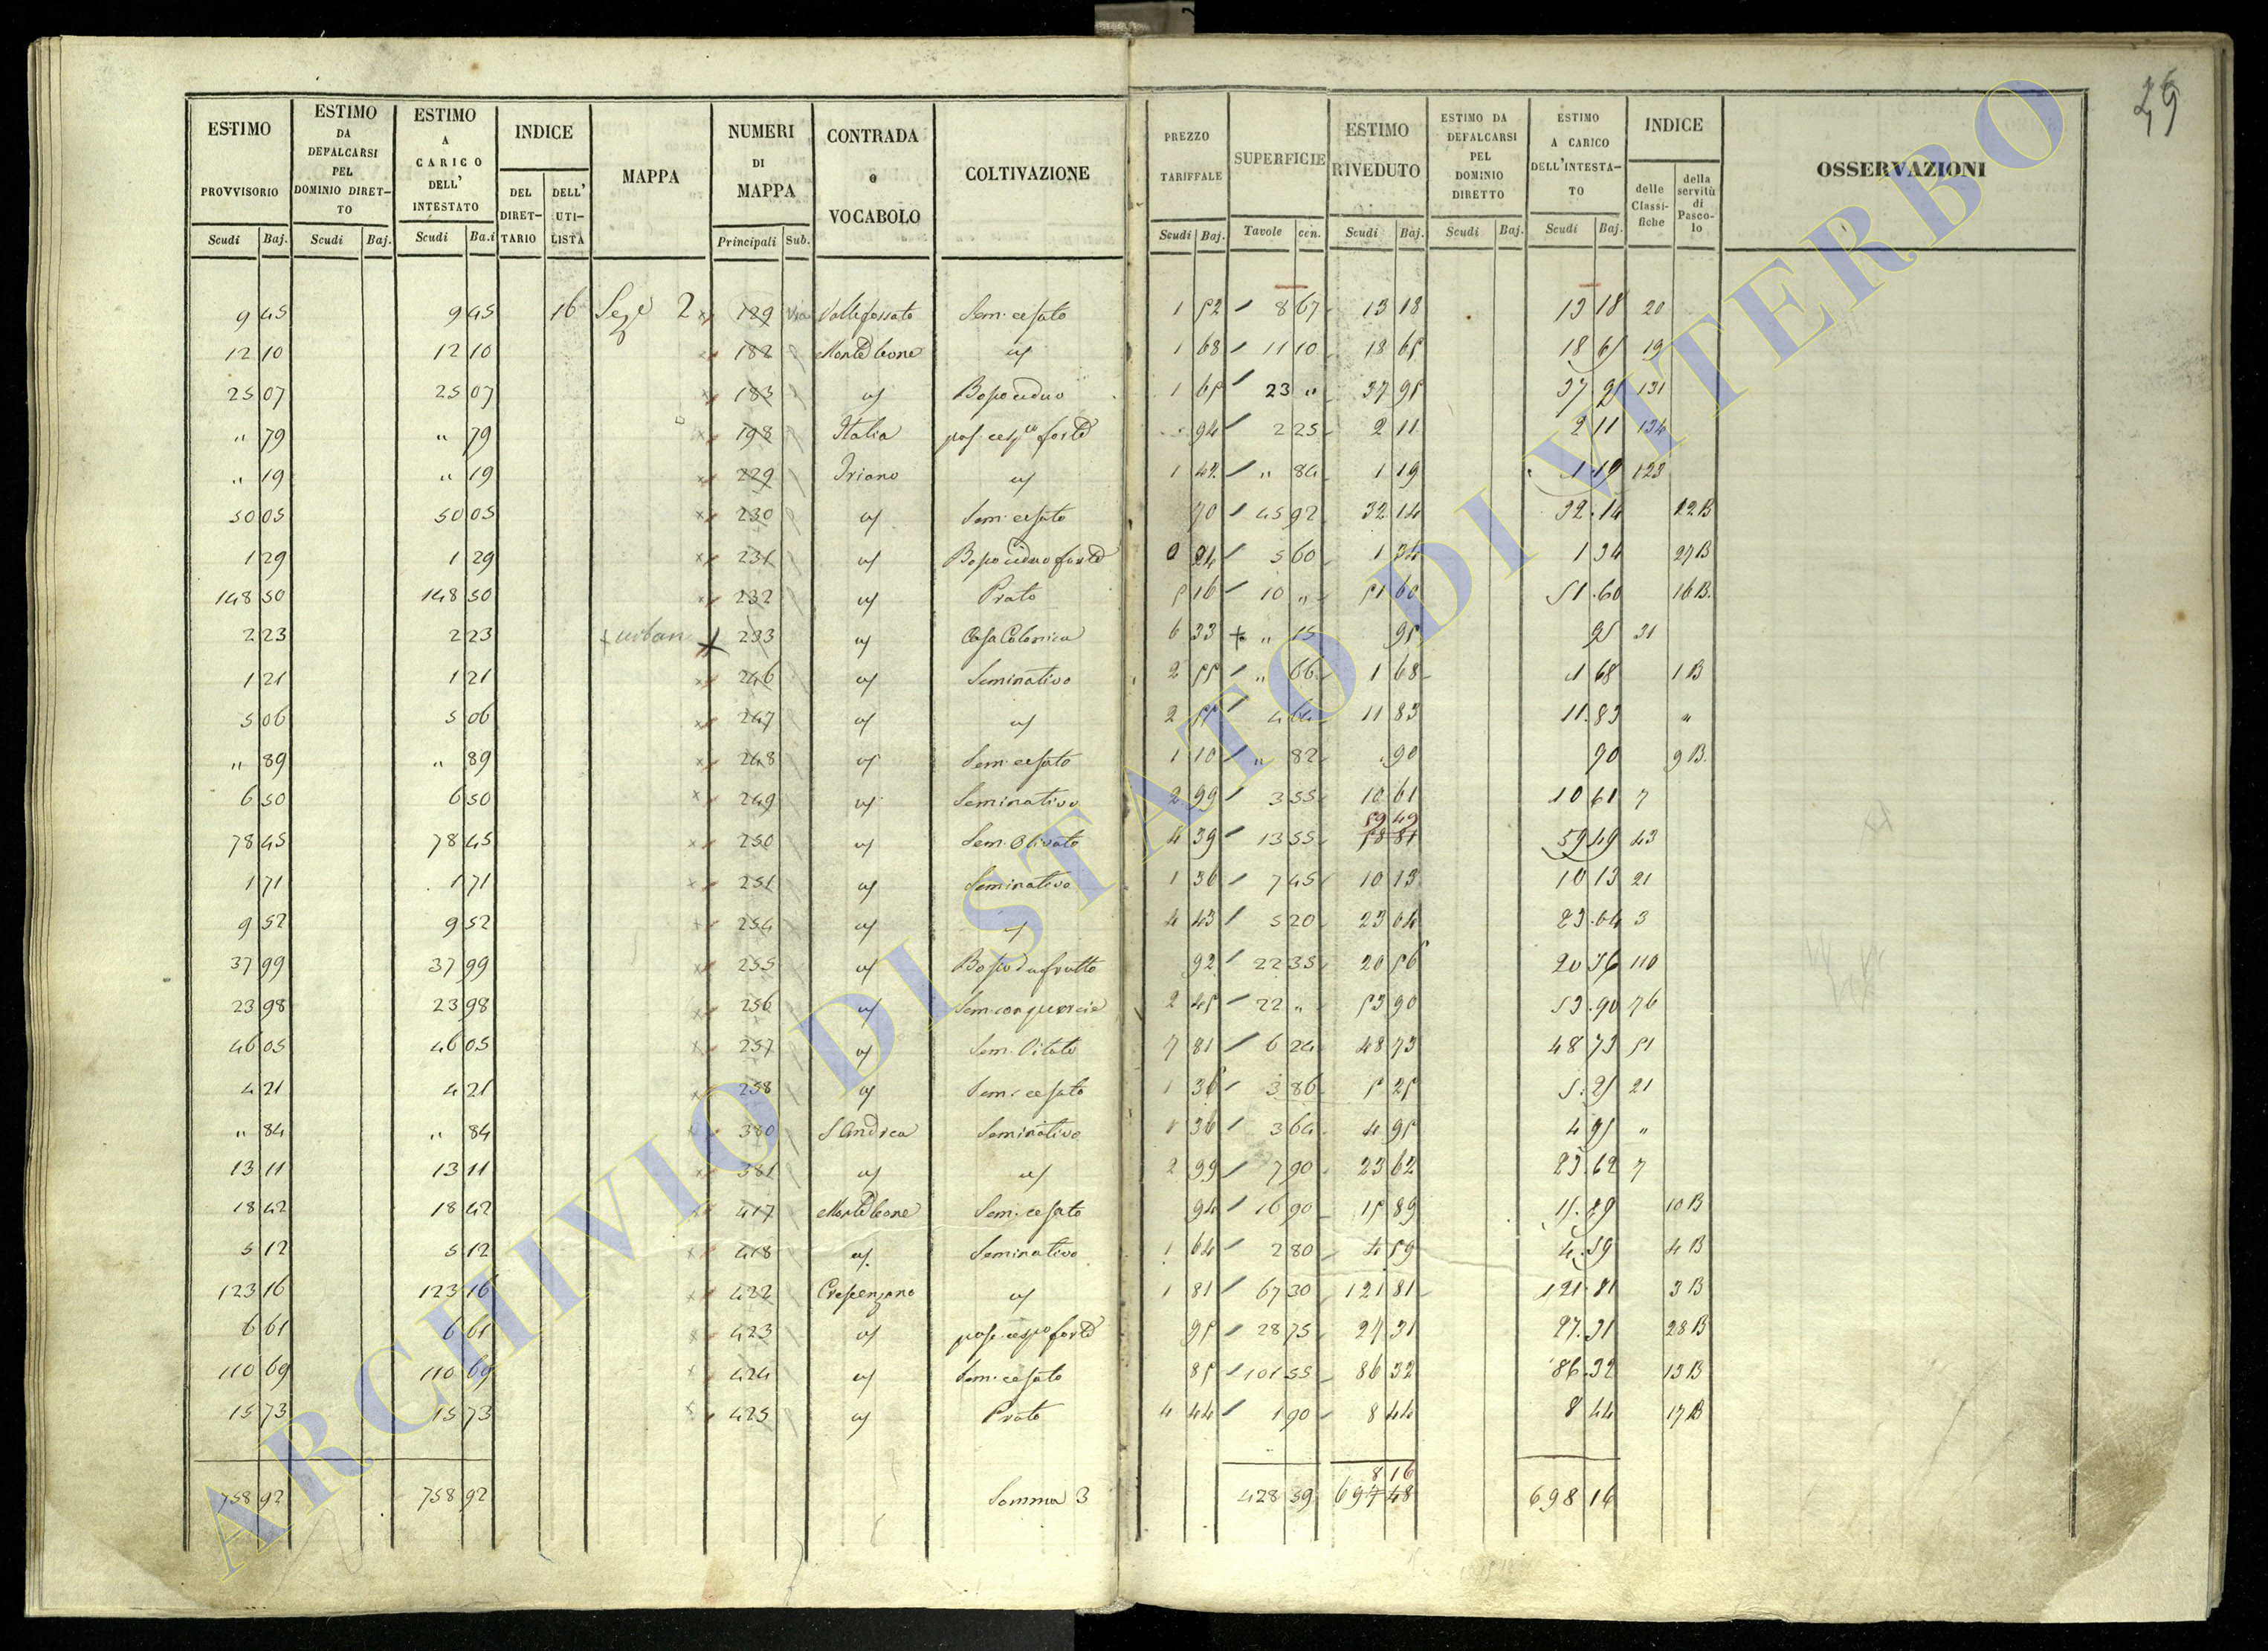 26
ESTIMO PROVVISORIO | ESTIMO DA DEFALCARSI PEL DOMINIO DIRETTO | ESTIMO A CARICO DELL' INTESTATO | INDICE | MAPPA | NUMERI DI MAPPA | CONTRADA e VOCABOLO | COLTIVAZIONE | PREZZO TARIFFALE | SUPERFICIE | ESTIMO RIVEDUTO | ESTIMO DA DEFALCARSI PEL DOMINIO DIRETTO | ESTIMO A CARICO DELL'INTESTATO | INDICE | OSSERVAZIONI
DEL DIRETTARIO | DELL' UTILISTA | delle Classifiche | della servitù di Pascolo
Scudi | Baj. | Scudi | Baj. | Scudi | Ba.i | Principali | Sub. | Scudi | Baj. | Tavole | cen. | Scudi | Baj. | Scudi | Baj. | Scudi | Baj.
9 45 | 9 45 | 16 | Seze 2 | 129 | Vallefossato | Sem. cesato | 1 52 | 8 67 | 13 18 | 13 18 | 20
12 10 | 12 10 | 182 | Monteleone | " | 1 68 | 11 10 | 18 65 | 18 65 | 19
25 07 | 25 07 | 183 | " | Bosco ceduo | 1 65 | 23 " | 37 95 | 37 95 | 131
" 79 | " 79 | 198 | Italia | pas. cesp.to forte | 94 | 2 25 | 2 11 | 2 11 | 134
" 19 | " 19 | 229 | Iriano | " | 1 42 | " 84 | 1 19 | 1 19 | 123
50 05 | 50 05 | 230 | " | Sem. cesato | 70 | 45 92 | 32 14 | 32 14 | 12 B
1 29 | 1 29 | 231 | " | Bosco ceduo forte | 0 24 | 5 60 | 1 34 | 1 34 | 27 B
148 50 | 148 50 | 232 | " | Prato | 5 16 | 10 " | 51 60 | 51 60 | 16 B.
2 23 | 2 23 | urban | 233 | " | Casa Colonica | 6 33 | " 15 | 95 | 95 | 31
1 21 | 1 21 | 246 | " | Seminativo | 2 55 | " 66 | 1 68 | 1 68 | 1 B
5 06 | 5 06 | 247 | " | " | 2 55 | 4 64 | 11 83 | 11 83 | "
" 89 | " 89 | 248 | " | Sem. cesato | 1 10 | " 82 | 90 | 90 | 9 B.
6 50 | 6 50 | 249 | " | Seminativo | 2 99 | 3 55 | 10 61 | 10 61 | 7
78 45 | 78 45 | 250 | " | Sem. Olivato | 4 39 | 13 55 | 59 49 | 59 49 | 43
1 71 | 1 71 | 251 | " | Seminativo | 1 36 | 7 45 | 10 13 | 10 13 | 21
9 52 | 9 52 | 254 | " | " | 4 43 | 5 20 | 23 04 | 23 04 | 3
37 99 | 37 99 | 255 | " | Bosco da frutto | 92 | 22 35 | 20 56 | 20 56 | 110
23 98 | 23 98 | 256 | " | Sem. con quercie | 2 45 | 22 " | 53 90 | 53 90 | 76
46 05 | 46 05 | 257 | " | Sem. Vitato | 7 81 | 6 24 | 48 73 | 48 73 | 51
4 21 | 4 21 | 258 | " | Sem. cesato | 1 36 | 3 86 | 5 25 | 5 25 | 21
" 84 | " 84 | 380 | S. Andrea | Seminativo | 1 36 | 3 64 | 4 95 | 4 95 | "
13 11 | 13 11 | 381 | " | " | 2 99 | 7 90 | 23 62 | 23 62 | 7
18 42 | 18 42 | 417 | Monteleone | Sem. cesato | 94 | 16 90 | 15 89 | 15 89 | 10 B
5 12 | 5 12 | 418 | " | Seminativo | 1 64 | 2 80 | 4 59 | 4 59 | 4 B
123 16 | 123 16 | 422 | Crescenzano | " | 1 81 | 67 30 | 121 81 | 121 81 | 3 B
6 61 | 6 61 | 423 | " | pas. cespo forte | 95 | 28 75 | 27 31 | 27 31 | 28 B
110 69 | 110 69 | 424 | " | Sem. cesato | 85 | 101 55 | 86 32 | 86 32 | 13 B
15 73 | 15 73 | 425 | " | Prato | 4 44 | 1 90 | 8 44 | 8 44 | 17 B
8 16
758 92 | 758 92 | Somma 3 | 428 59 | 697 48 | 698 16
ARCHIVIO DI STATO DI VITERBO